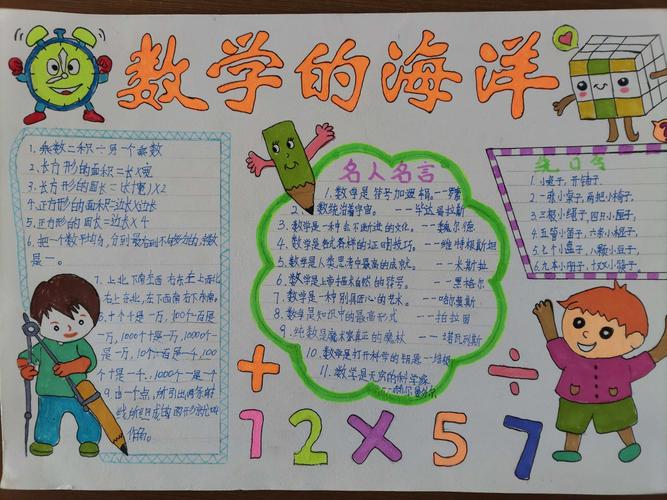 数学的海洋
1.乘数=积÷另一个乘数
2.长方形的面积=长×宽
3.长方形的周长=(长+宽)×2
4.正方形的面积=边长×边长
5.正方形的周长=边长×4
6.把一个数平均分,分到最
是一。
7.上北,下南,左西,右东,左上西北,
右上东北,左下西南,右下东南。
8.十个十是一百,100个百是
一万,1000个十是一万,1000个
一是一万,10个一百是一千,100
个十是一千,1000个一是一千
9.由一个点,所引出两条射
线所组成的图形就叫
作角。
名人名言
1.数学是符号加逻辑。--罗素
2.数统治着宇宙。--毕达哥拉斯
3.数学是一种会不断进化的文化。--魏尔德
4.数学是各式各样的证明技巧。--维特根斯坦
5.数学是人类思考中最高的成就。--米斯拉
6.数学是上帝描述自然的符号。--黑格尔
7.数学是一种别具匠心的艺术。--哈尔莫斯
8.数学是知识中的最高形式--柏拉图
9.纯数是魔术家真正的魔杖--诺瓦列斯
10.数学是打开科学的钥匙--培根
11.数学是无穷的科学
绕口令
1.小兔子,开铺子,
2.一张小桌子,两把小椅子,
3.三根小绳子,四只小匣子,
4.五管小笛子,六条小棍子,
5.七个小盘子,八颗小豆子,
6.九本小册子,十双小筷子,
+
÷
1 2 × 5 7